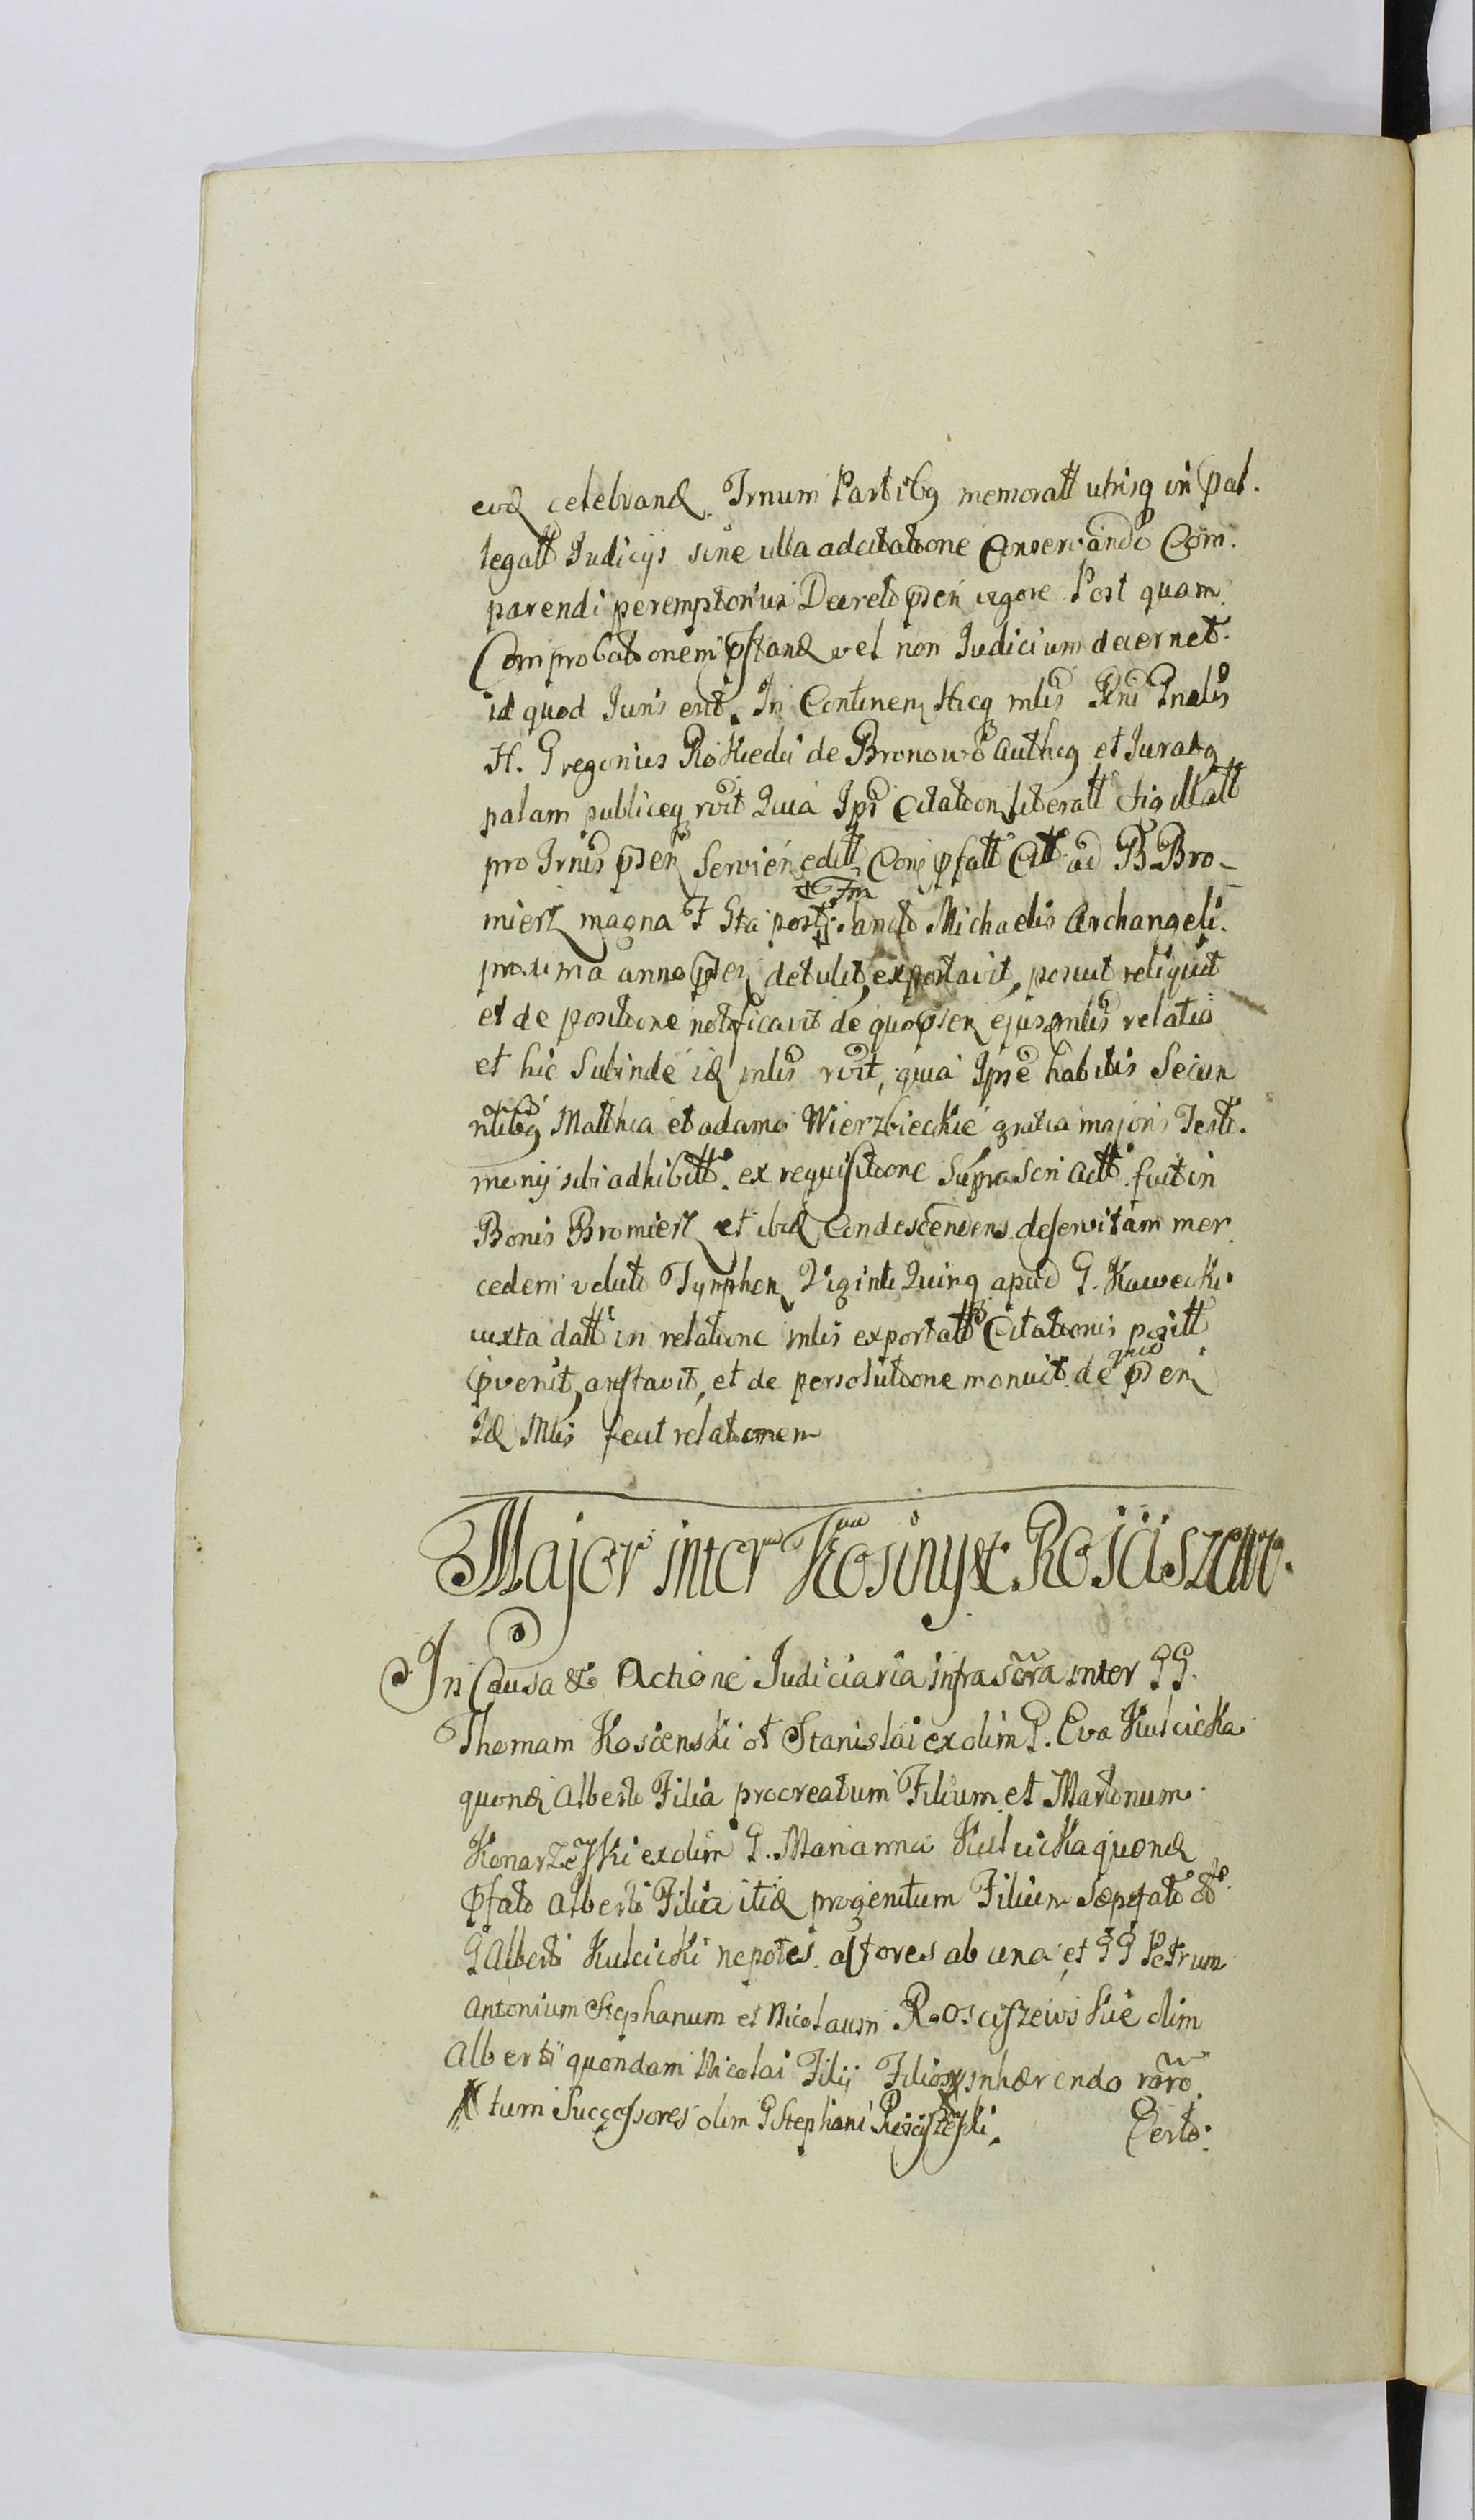 eod celebrand Trnum Partibq memoratt utrisq in pal.
legatt Judicijs sine ulla adcitatione Conservando Com.
parendi peremptorium Decreto psen vigore Post quam
Comprobationem pstand vel non Judicium decernet
id quod Juris erit. In Continen
H. Gregorius de Bronowo Authcq et Juratq
palam publiceq rvit Quia Ips Citation literatt sigillatt
pro Trnis psen Servien editt pfatt Citt ad B Bro-
mierz magna F Sta post Sancto Michaelis Archangeli
proxima anno psen detulit, exportavit, posuit reliquit
et de positione notificavit de quo psen ejusd mlis relatio
et hic Subinde id mlis rvit, quia Ipse habitis Secum
nlibq Matthia et adamo Wierzbieckie gratia majoris Testi.
monij sibi adhibitt. ex requisitione Supra Scri Actt fuit in
Bonis Bromierz et ibid Condescendens deservitam mer
cedem veluti Tymphon Viginti Quinq apud G. Kawecki
iuxta datt in relatione mlis exportatt Citationis positt
pvenit, arestavit, et de persolutione monuit de quo psen
Id Mlis fecit relationem
Major inter Kosciny et Rosciszew.
In Causa et Actione Judiciaria infrascra inter GG.
Thomam Koscienski ol Stanislai ex olim G. Eva Kulcicka
quond Alberti Filia procreatum Filium et Martinum
Konarzewski ex olim G. Marianna Kulcicka quond
pfato Alberti Filia itid progenitum Filium Sæpefato
G Alberti Kulcicki nepotes actores ab una et GG Petrum
Antonium Stephanum et Nicolaum Rosciszewskie olim
Alberti quondam Nicolai Filij Filios inhærendo
tum Successores olim G Stephani Rosciszewski.
Certo.